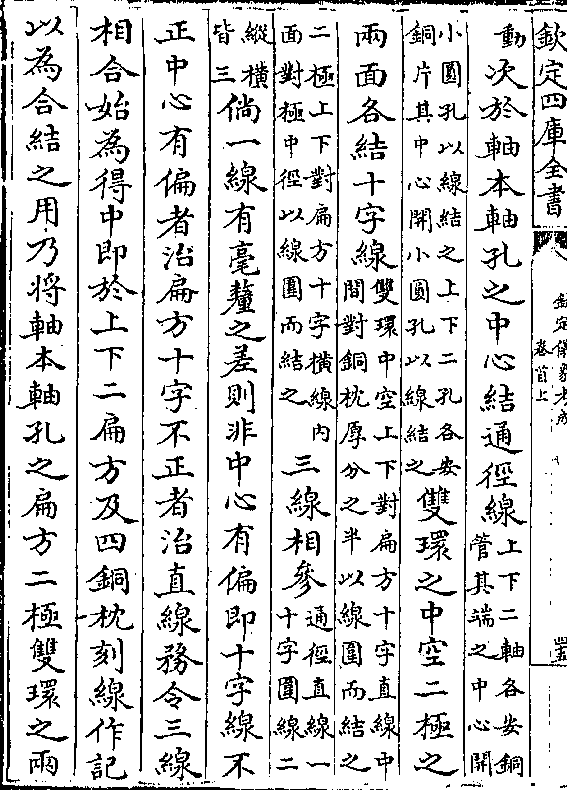 欽定四庫全書
欽定儀象考成
卷首上
動次於軸本軸孔之中心結通徑線上下二軸各安銅管其端之中心開
小圓孔以線結之上下二孔各安銅片其中心開小圓孔以線結之雙環之中空二極之
兩面各結十字線雙環中空上下對扁方十字直線中間對銅枕厚分之半以線圍而結之
二極上下對扁方十字橫線內面對極中徑以線圍而結之三線相參通徑直線一十字圍線二
縱橫皆三倘一線有毫釐之差則非中心有偏即十字線不
正中心有偏者治扁方十字不正者治直線務令三線
相合始為得中即於上下二扁方及四銅枕刻線作記
以為合結之用乃將軸本軸孔之扁方二極雙環之兩